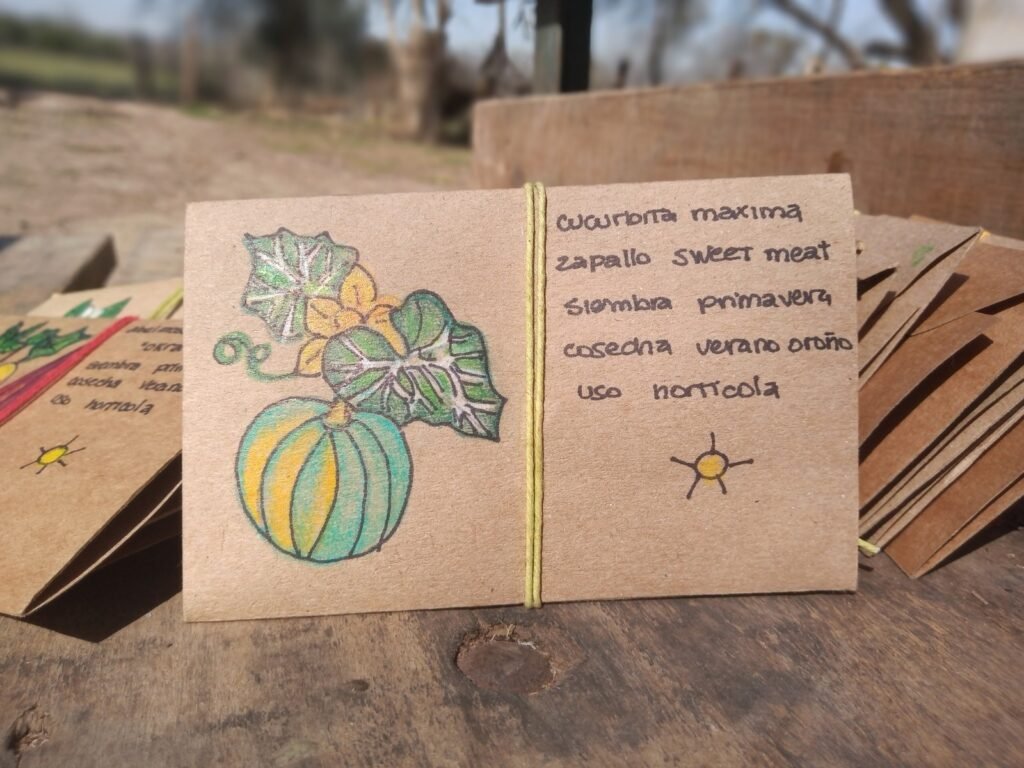 cucurbita maxima
zapallo sweet meat
siembra primavera
cosecha verano otoño
uso hortícola
okra
siembra
cosecha
uso hortícola